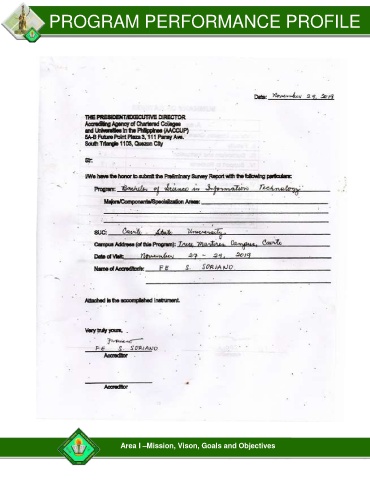 PROGRAM PERFORMANCE PROFILE
Date: November 29, 2019
THE PRESIDENT/EXECUTIVE DIRECTOR
Accrediting Agency of Chartered Colleges
and Universities in the Philippines (AACCUP)
5A-B Future Point Plaza 3, 111 Panay Ave.
South Triangle 1103, Quezon City
Sir:
I/We have the honor to submit the Preliminary Survey Report with the following particulars:
Program: Bachelor of Science in Information Technology
Majors/Components/Specialization Areas:
SUC: Cavite State University
Campus Address (of this Program): Trece Martires Campus, Cavite
Date of Visit: November 27 - 29, 2019
Name of Accreditor/s: FE S. SORIANO
Attached is the accomplished instrument.
Very truly yours,
FE S. SORIANO
Accreditor
Accreditor
Area I –Mission, Vison, Goals and Objectives